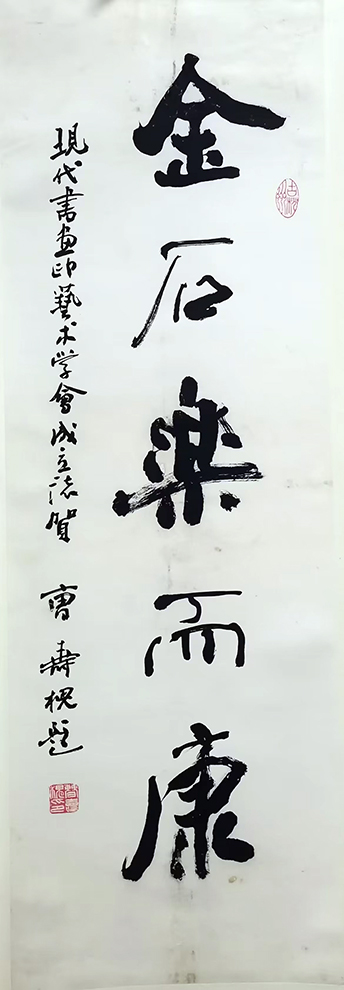 金石樂而康
現代書畫印藝术学會成立誌賀
曹壽槐題